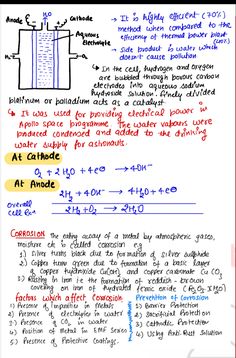 H₂O
Anode
Cathode
Aqueous
electrolyte
→ It is highly efficient (70%)
method when compared to the
efficiency of thermal power plant
(40%)
→ Side product is water which
doesn't cause pollution
→ In the cell, hydrogen and oxygen
are bubbled through porous carbon
electrodes into aqueous sodium
hydroxide solution. finely divided
platinum or palladium acts as a catalyst
→ It was used for providing electrical power in
Apollo space programme. The water vapours were
produced condensed and added to the drinking
water supply for astronauts.
At Cathode
O₂ + 2H₂O + 4e⊖ → 4OH⁻
At Anode
2H₂ + 4OH⁻ → 4H₂O + 4e⊖
Overall
cell
2H₂ + O₂ → 2H₂O
CORROSION The eating away of a metal by atmospheric gases,
moisture etc is called corrosion e.g
1) Silver turns black due to formation of silver sulphide
2) Copper turns green due to formation of a basic layer
of copper hydroxide Cu(OH)₂ and copper carbonate CuCO₃
3) Rusting in Iron ie the formation of reddish-brown
covering on iron of hydrated ferric oxide (Fe₂O₃·XH₂O)
factors which affect corrosion
1) Presence of impurities in Metals
2) Presence of electrolytes in water
3) Presence of CO₂ in water
4) Position of Metal in EMF Series
5) Presence of Protective Coatings.
Prevention of corrosion
1) Barrier Protection
2) Sacrificial Protection
3) Cathodic Protection
4) Using Anti-Rust Solution